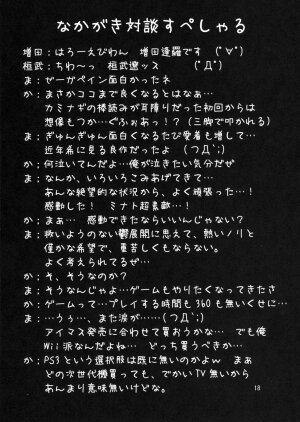 なかがき対談すぺしゃる
増田：はろーえびわん 増田逢羅です (ﾟ∀ﾟ)
桓武：ちわ〜っ 桓武遼ッス (ﾟДﾟ)
ま：ゼーガペイン面白かったネ
か：まさかココまで良くなるとはなぁ…
カミナギの棒読みが耳障りだった初回からは
想像もつか…ぐふぉあっ！？(三脚で叩かれる)
ま：ぎゅんぎゅん面白くなるたび愛着も増して…
近年希に見る良作だったよ (つД`；)
か：何泣いてんだよ…俺が泣きたい気分だぜ
ま：なんか、いろいろこみあげてきて…
あんな絶望的な状況から、よく頑張った…！
感動した！ ミナト超素敵…！
か：まぁ… 感動できたならいいんじゃない？
ま：救いようのない鬱展開に思えて、熱いノリと
僅かな希望で、重苦しくもならない。
よく考えられてるぜ…
か：そ、そうなのか？
ま：そうなんじゃよ…ゲームもやりたくなってきたさ
か：ゲームって…プレイする時間も360も無いくせに…
ま：…うぅ、また涙が……(つД`；)
アイマス発売に合わせて買おうかな… でも俺
Wii派なんだよね… どっち買うべきか…
か：PS3という選択肢は既に無いのかよｗ まぁ
どの次世代機買っても、でかいTV無いから
あんまり意味無いけどな。
18